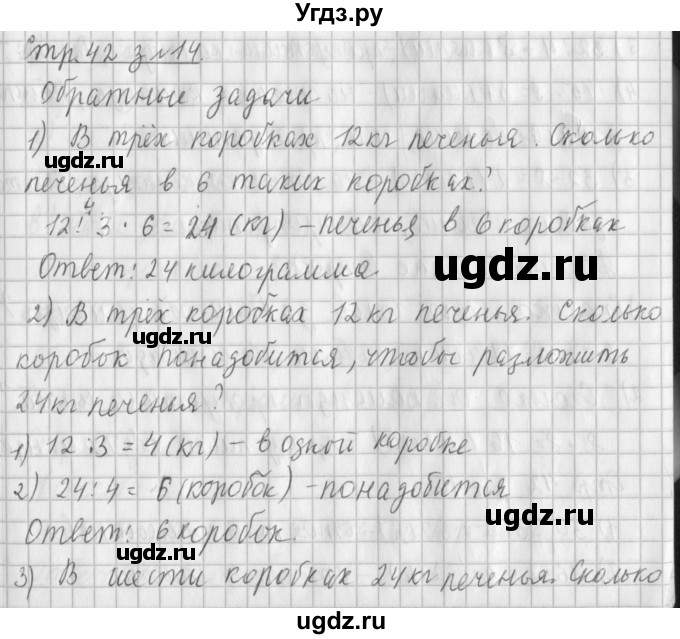 Угдз.ру
Стр. 42 з №14.
Обратные задачи
1) В трёх коробках 12 кг печенья. Сколько
угдз.ру
печенья в 6 таких коробках?
4
12 : 3 · 6 = 24 (кг) – печенья в 6 коробках
угдз.ру
Ответ: 24 килограмма.
угдз.ру
2) В трёх коробках 12 кг печенья. Сколько
коробок понадобится, чтобы разложить
24 кг печенья?
1) 12 : 3 = 4 (кг) – в одной коробке
2) 24 : 4 = 6 (коробок) – понадобится
угдз.ру
Ответ: 6 коробок.
угдз.ру
3) В шести коробках 24 кг печенья. Сколько
угдз.ру